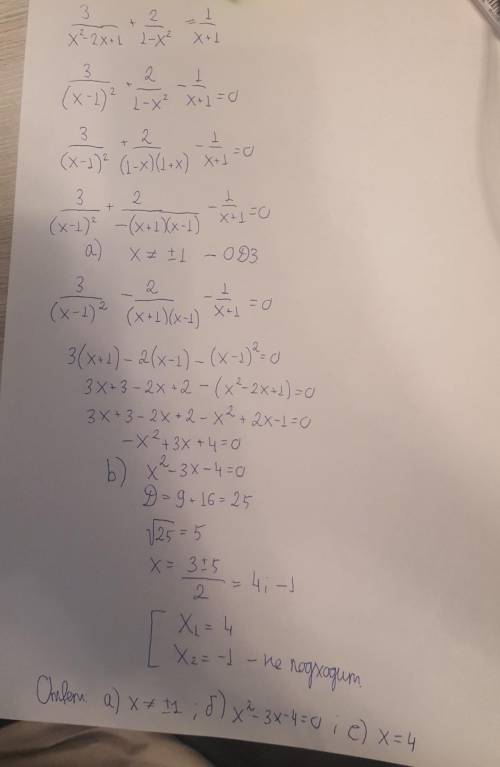 3/(x²-2x+1) + 2/(1-x²) = 1/(x+1)
3/(x-1)² + 2/(1-x²) - 1/(x+1) = 0
3/(x-1)² + 2/((1-x)(1+x)) - 1/(x+1) = 0
3/(x-1)² + 2/(-(x+1)(x-1)) - 1/(x+1) = 0
a) x ≠ ±1 - ОДЗ
3/(x-1)² - 2/((x+1)(x-1)) - 1/(x+1) = 0
3(x+1) - 2(x-1) - (x-1)² = 0
3x+3-2x+2-(x²-2x+1)=0
3x+3-2x+2-x²+2x-1=0
-x²+3x+4=0
b) x²-3x-4=0
D=9+16=25
√25=5
x = (3±5)/2 = 4; -1
[ x₁ = 4
x₂ = -1 - не подходит.
Ответ: а) x ≠ ±1; б) x²-3x-4=0; с) x=4